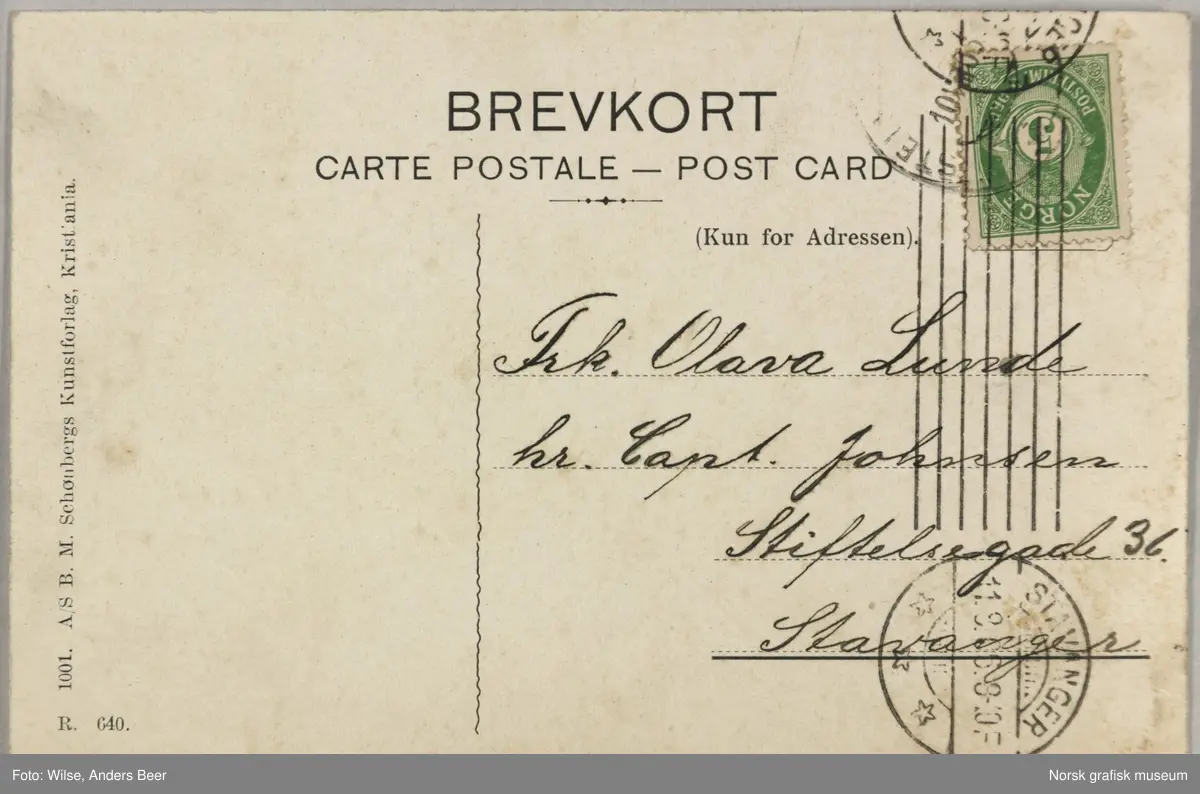 BREVKORT
CARTE POSTALE — POST CARD
(Kun for Adressen).
NORGE
5
Frk. Olava Lunde
hr. Capt. Johnsen
Stiftelsegade 36.
Stavanger
STAVANGER
1001. A/S B. M. Schønbergs Kunstforlag, Kristiania.
R. 640.
Foto: Wilse, Anders Beer
Norsk grafisk museum